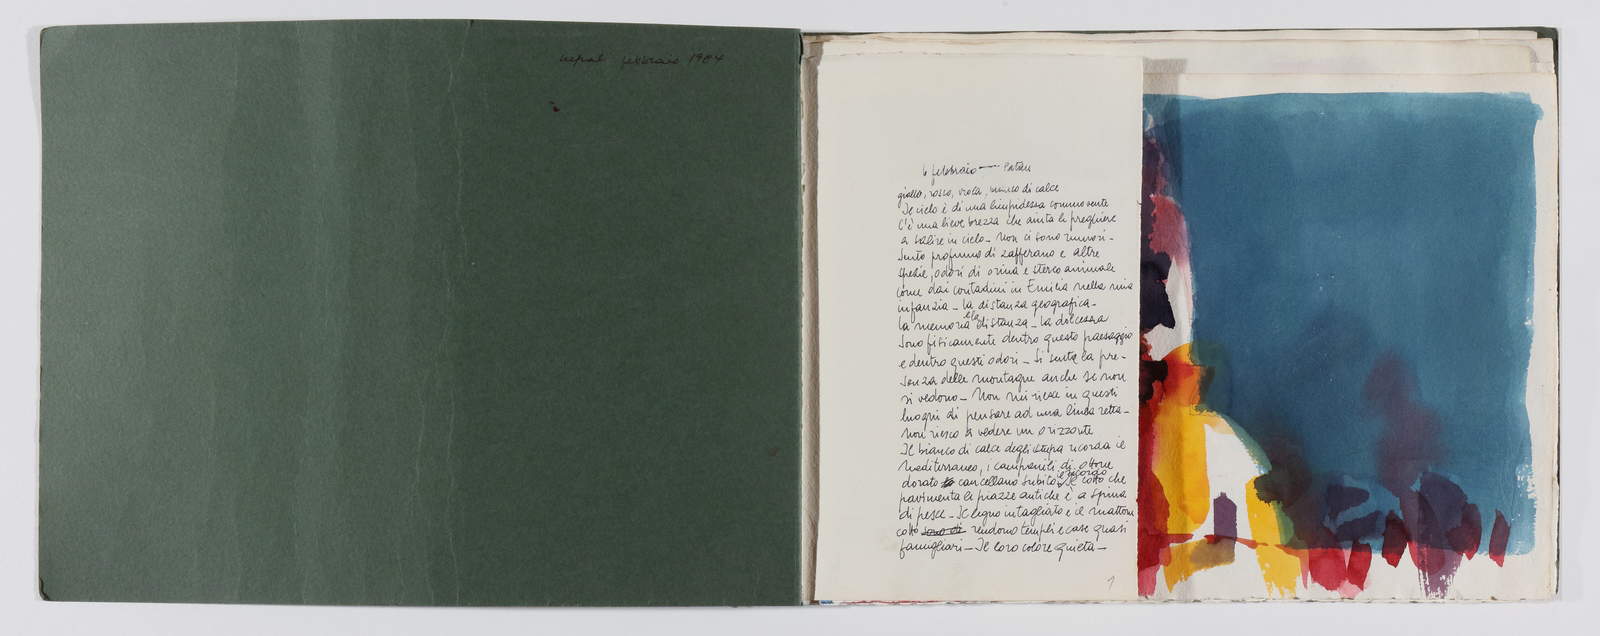 nepal febbraio 1984
6 febbraio — Patan
giallo, rosso, viola, bianco di calce
Il cielo è di una limpidezza commovente
C'è una lieve brezza che aiuta le preghiere
a salire in cielo - Non ci sono rumori -
Sento profumo di zafferano e altre
spezie, odori di orina e sterco animale
come dai contadini in Emilia nella mia
infanzia - la distanza geografica -
la memoria e la distanza - la dolcezza
Sono fisicamente dentro questo paesaggio
e dentro questi odori - Si sente la pre-
senza delle montagne anche se non
si vedono - Non mi riesce in questi
luoghi di pensare ad una linea retta -
Non riesco a vedere un orizzonte
Il bianco di calce degli stupa ricorda il
Mediterraneo, i campanili di ottone
dorato cancellano subito il ricordo. Il cotto che
pavimenta le piazze antiche è a spina
di pesce - Il legno intagliato e il mattone
cotto sono di rendono templi e case quasi
famigliari - Il loro colore quieta -
1